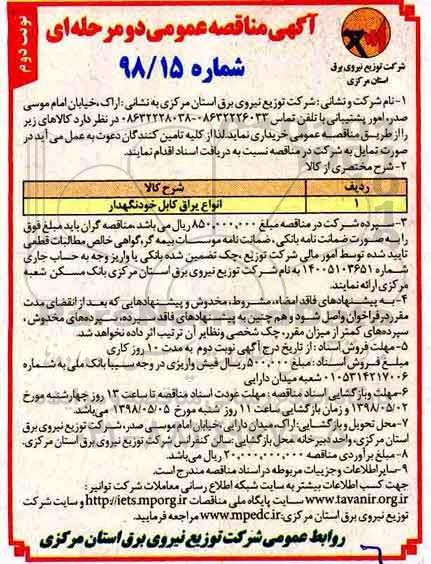 نوبت دوم
آگهی مناقصه عمومی دو مرحله ای
شماره ۹۸/۱۵
شرکت توزیع نیروی برق
استان مرکزی
۱-نام شرکت و نشانی : شرکت توزیع نیروی برق استان مرکزی به نشانی : اراک، خیابان امام موسی
صدر، امور پشتیبانی با تلفن تماس ۰۸۶۳۲۲۲۶۰۳۳-۰۸۶۳۲۲۲۸۰۳۸ در نظر دارد کالاهای زیر
را از طریق مناقصه عمومی خریداری نماید. لذا از کلیه تامین کنندگان دعوت به عمل می آید در
صورت تمایل به شرکت در مناقصه نسبت به دریافت اسناد اقدام نمایند.
۲-شرح مختصری از کالا
ردیف شرح کالا
۱ انواع یراق کابل خودنگهدار
۳-سپرده شرکت در مناقصه مبلغ ۸۵۰,۰۰۰,۰۰۰ ریال می باشد، مناقصه گران باید مبلغ فوق
را به صورت ضمانت نامه بانکی ، ضمانت نامه موسسات بیمه گر، گواهی خالص مطالبات قطعی
تایید شده توسط امور مالی شرکت توزیع ،چک تضمین شده بانکی یا واریز وجه به حساب جاری
شماره ۱۴۰۰۵۱۰۳۶۵۱ به نام شرکت توزیع نیروی برق استان مرکزی بانک مسکن شعبه
مرکزی ارائه نمایند.
۴-به پیشنهادهای فاقد امضاء، مشروط، مخدوش و پیشنهادهایی که بعد از انقضای مدت
مقرر در فراخوان واصل شود و هم چنین به پیشنهادهای فاقد سپرده، سپرده های مخدوش ،
سپرده های کمتر از میزان مقرر، چک شخصی ونظایر آن ترتیب اثر داده نخواهد شد.
۵-مهلت فروش اسناد : از تاریخ درج آگهی نوبت دوم به مدت ۱۰ روز کاری
مبلغ فروش اسناد : مبلغ ۵۰۰,۰۰۰ ریال فیش واریزی در وجه سیبا بانک ملی به شماره
۰۱۰۵۳۱۴۲۱۷۰۰۶ شعبه میدان دارایی
۶-مهلت و بازگشایی اسناد مناقصه : مهلت عودت اسناد مناقصه تا ساعت ۱۳ روز چهارشنبه مورخ
۱۳۹۸/۰۵/۰۲ و زمان بازگشایی ساعت ۱۱ روز شنبه مورخ ۱۳۹۸/۰۵/۰۵ می باشد.
۷-محل تحویل و بازگشایی: اراک، میدان دارایی، خیابان امام موسی صدر، شرکت توزیع نیروی برق
استان مرکزی، واحد دبیرخانه محل بازگشایی: سالن کنفرانس شرکت توزیع نیروی برق استان مرکزی.
۸-مبلغ برآوردی مناقصه ۲۰,۰۰۰,۰۰۰,۰۰۰ ریال می باشد.
۹-سایر اطلاعات و جزییات مربوطه در اسناد مناقصه مندرج است.
جهت کسب اطلاعات بیشتر به سایت شبکه اطلاع رسانی معاملات شرکت توانیر :
www.tavanir.org.ir سایت پایگاه ملی مناقصات http://iets.mporg.ir و سایت شرکت
توزیع نیروی برق استان مرکزی: www.mpedc.ir مراجعه فرمایید.
روابط عمومی شرکت توزیع نیروی برق استان مرکزی